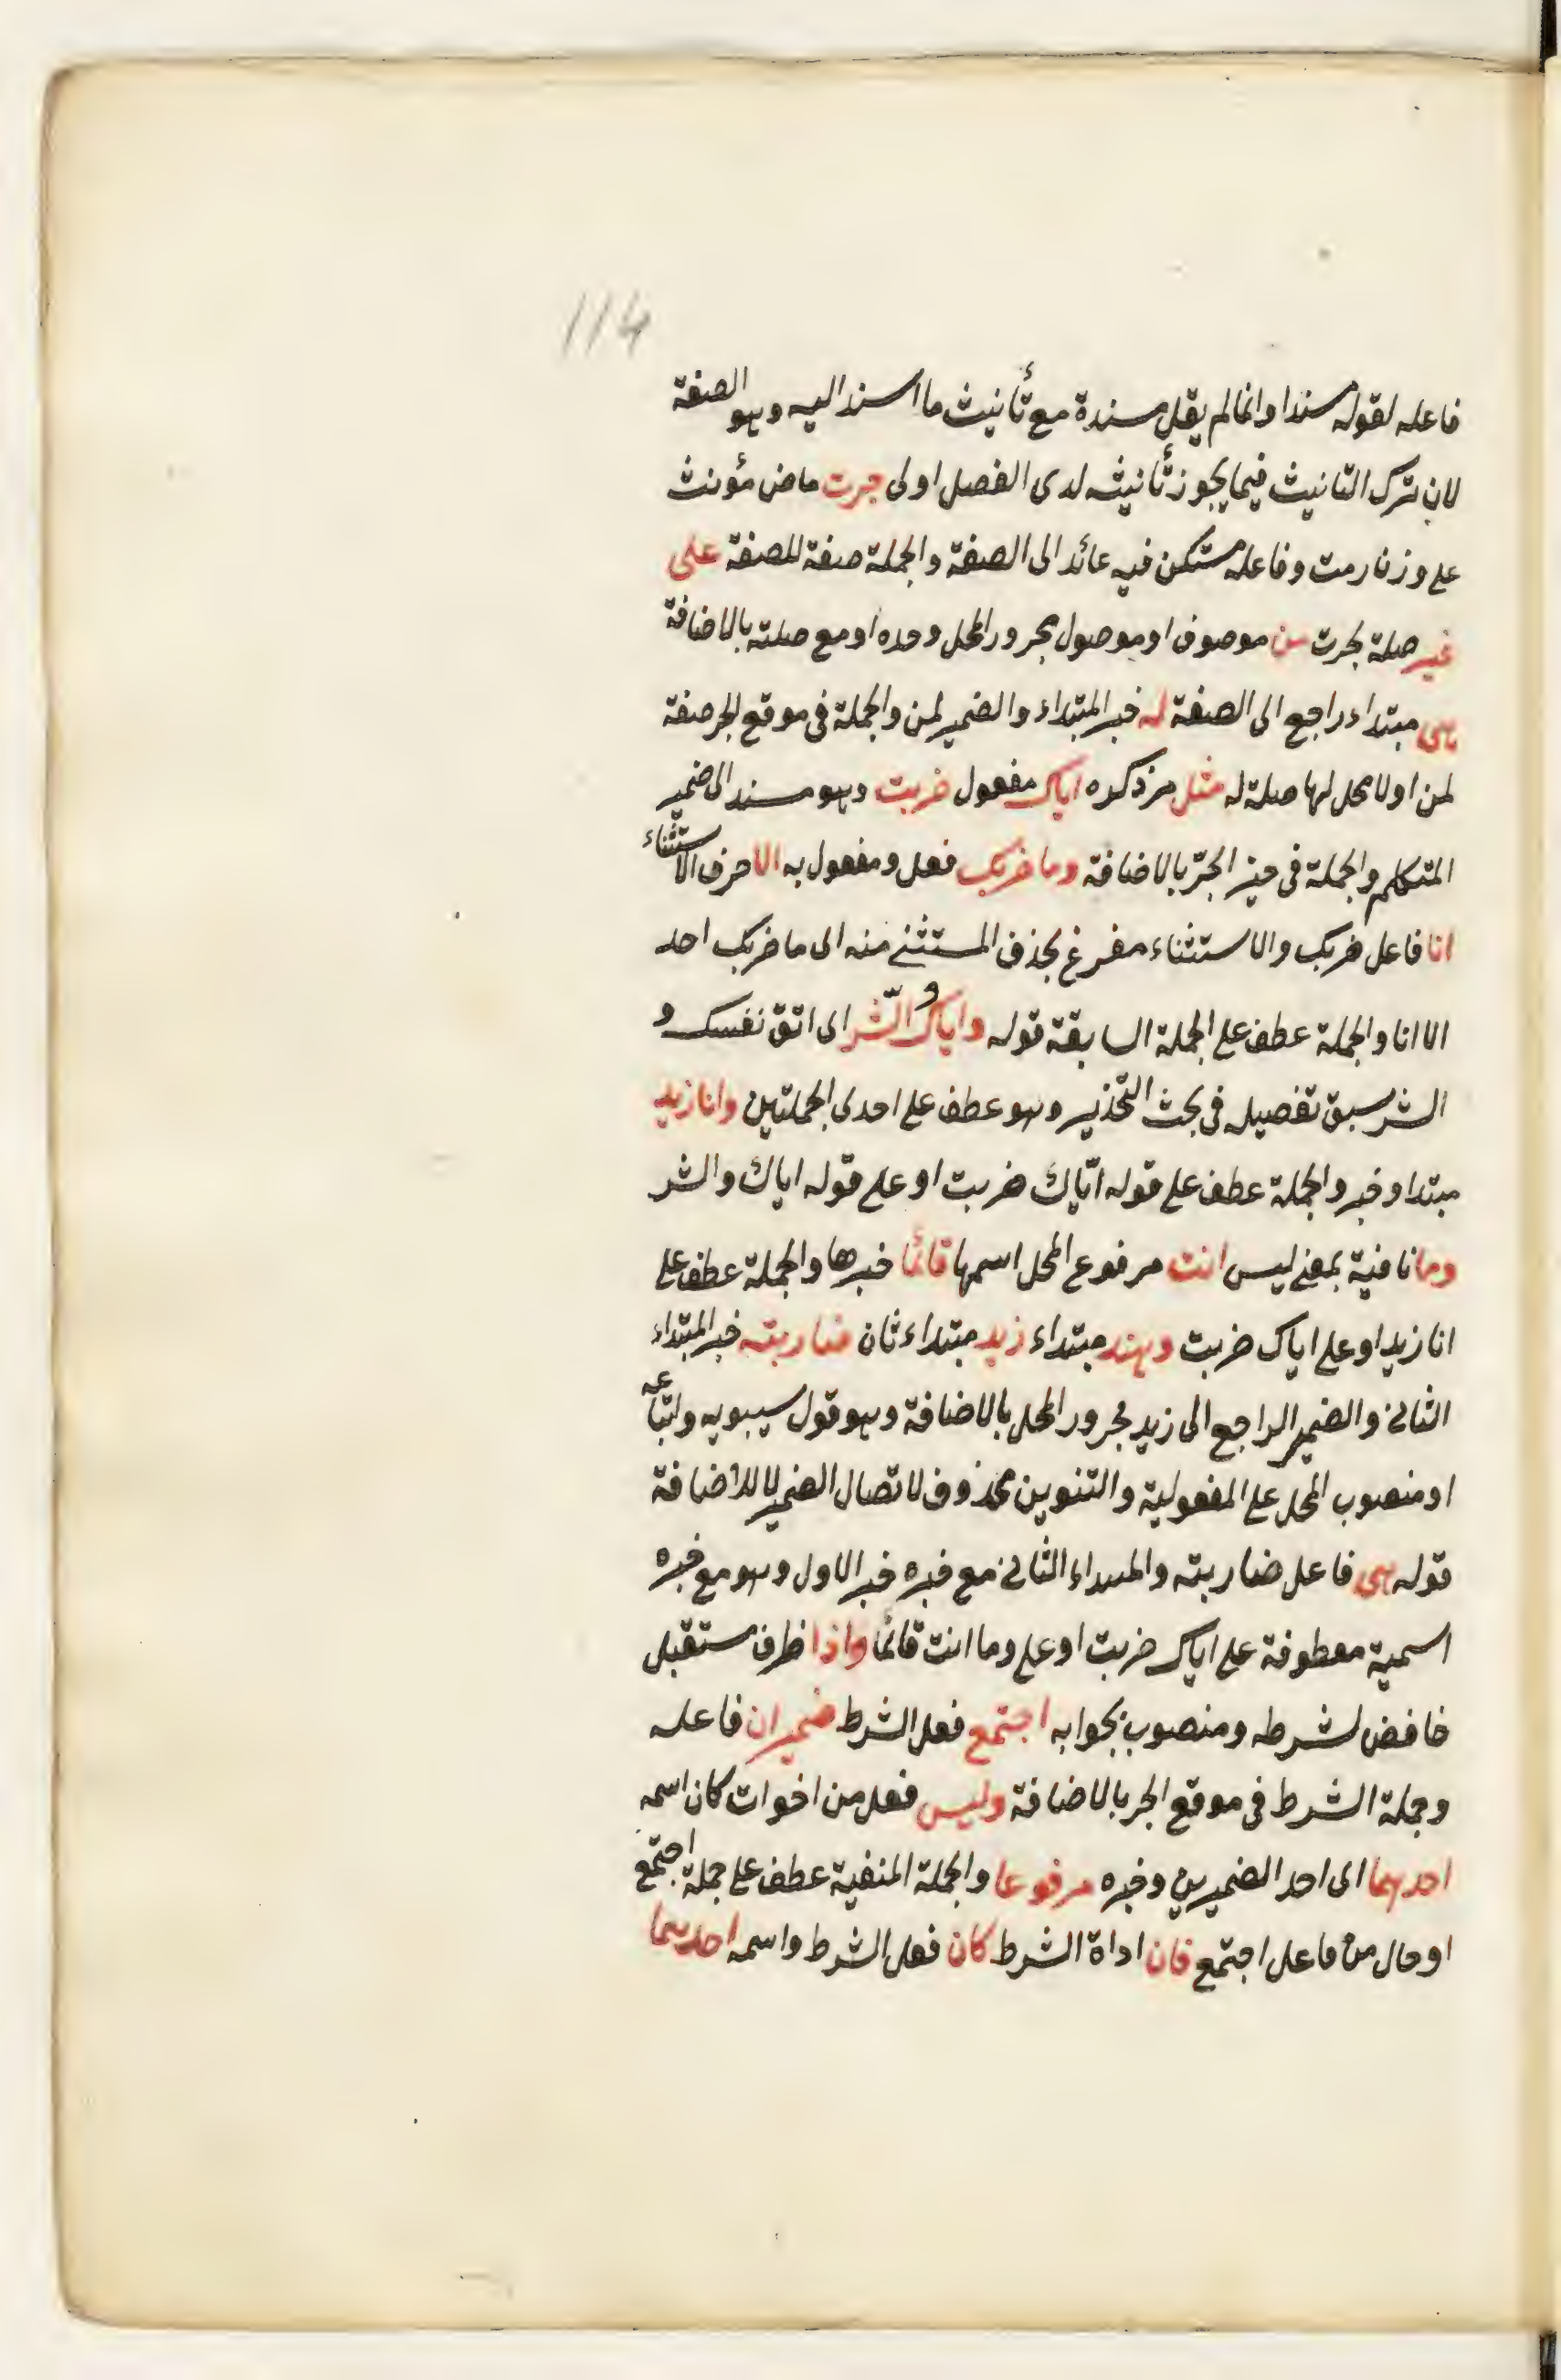 114
فاعله لقوله مسندا وانما لم يقل مسندة مع تأنيث ما اسند اليه وهو الصفة
لان ترك التانيث فيما يجوز تأنيثه لدى الفصل اولى جرت ماض مؤنث
على وزنا رمت وفاعله مستكن فيه عائد الى الصفة والجملة صفة للصفة على
غير صلة لجرت من موصوف او موصول مجرور المحل وحده او مع صلته بالاضافة
هى مبتداء راجع الى الصفة له خبر المبتداء والضمير لمن والجملة فى موقع الجر صفة
لمن او لا محل لها صلة له مثل مر ذكره اياك مفعول ضربت وهو مسند الى ضمير
المتكلم والجملة فى حيز الجرّ بالاضافة وما ضربك فعل ومفعول به الا حرف الاستثناء
انا فاعل ضربك والاستثناء مفرغ بحذف المستثنى منه اى ما ضربك احد
الا انا والجملة عطف على الجملة السابقة قوله واياك والشّر اى اتق نفسك و
الشر سبق تفصيله فى بحث التحذير وهو عطف على احدى الجملتين وانا زيد
مبتدا وخبر والجملة عطف على قوله ايّاك ضربت او على قوله اياك والشر
وما نافية بمعنى ليس انت مرفوع المحل اسمها قائما خبرها والجملة عطف على
انا زيد او على اياك ضربت وهند مبتداء زيد مبتداء ثان ضاربته خبر المبتداء
الثانى والضمير الراجع الى زيد مجرور المحل بالاضافة وهو قول سيبويه واتباعه
او منصوب المحل على المفعولية والتنوين محذوف لاتصال الضمير لا للاضافة
قوله هى فاعل ضاربته والمبتداء الثانى مع خبره خبر الاول وهو مع خبره
اسمية معطوفة على اياك ضربت او على وما انت قائما واذا ظرف مستقبل
خافض لشرطه ومنصوب بجوابه اجتمع فعل الشرط ضميران فاعله
وجملة الشرط فى موقع الجر بالاضافة وليس فعل من اخوات كان اسمه
احدهما اى احد الضميرين وخبره مرفوعا والجملة المنفية عطف على جملة اجتمع
او حال من فاعل اجتمع فان اداة الشرط كان فعل الشرط واسمه احدهما